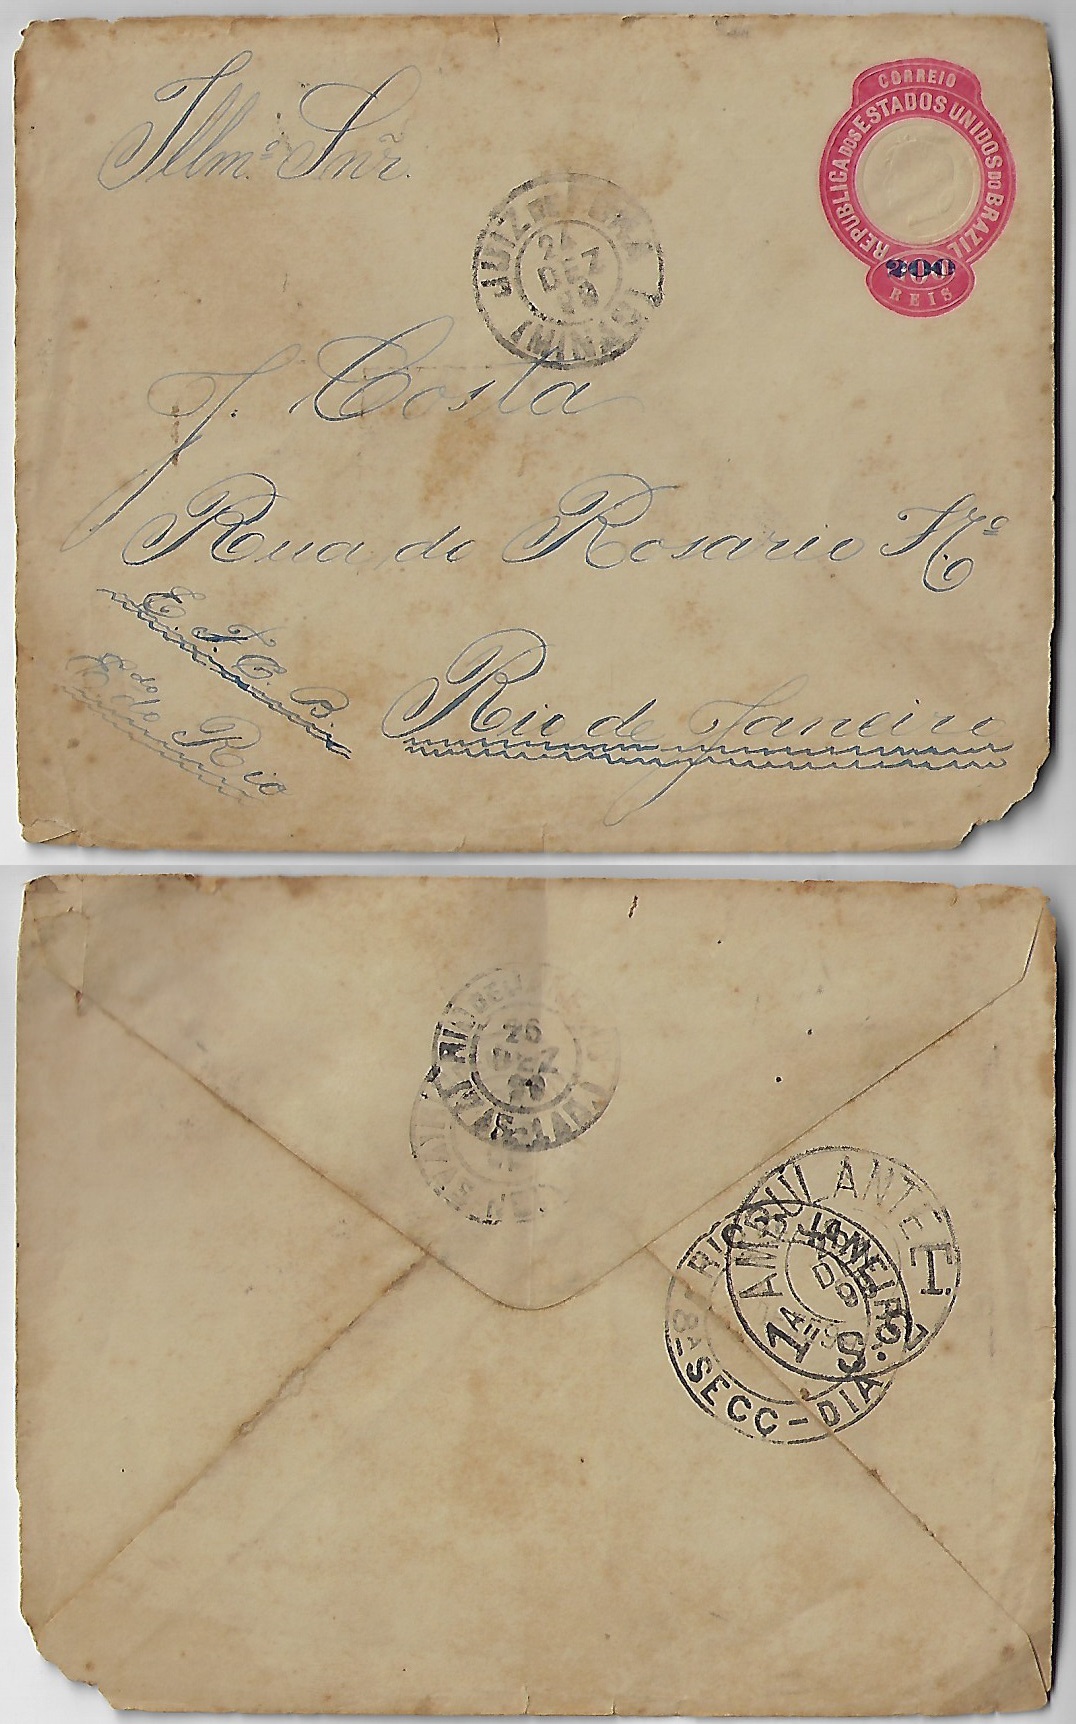 Illmº Snr.
CORREIO
REPUBLICA DOS ESTADOS UNIDOS DO BRAZIL
200
REIS
JUIZ DE FORA
DEZ
(MINAS)
J. Costa
Rua do Rosario Nº
E. F. C. B.
Eº do Rio
Rio de Janeiro
26
DEZ
AMBULANTE
T.
1
S.
RIO DE JANEIRO
8ª SECC - DIA